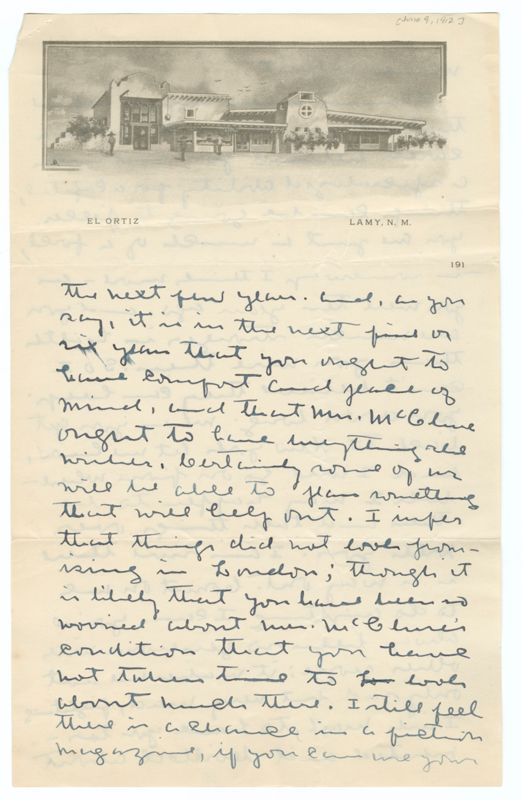 [June 9, 1912]
EL ORTIZ
LAMY, N. M.
191
the next few years. And, as you
say, it is in the next five or
six years that you ought to
have comfort and peace of
mind, and that Mrs. McClure
ought to have everything she
wishes. Certainly some of us
will be able to plan something
that will help out. I infer
that things did not look prom-
ising in London; though it
is likely that you have been so
worried about Mrs. McClure's
condition that you have
not taken time to look
about much there. I still feel
there is a chance in a fiction
magazine, if you can use your